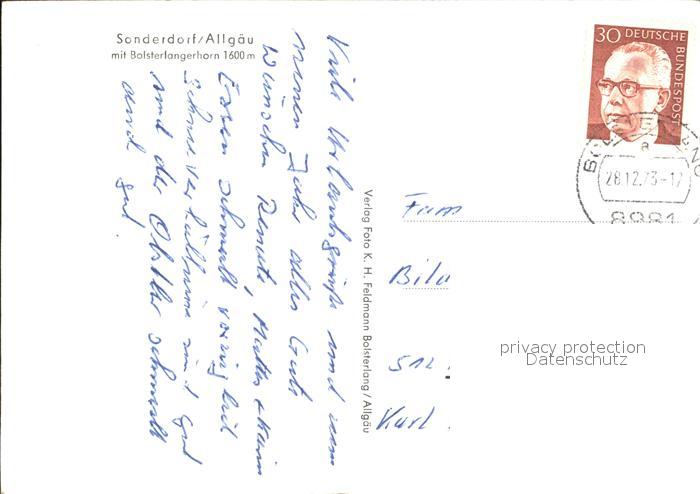 Sonderdorf/Allgäu
mit Bolsterlangerhorn 1600 m
Viele Urlaubsgrüße und zum
neuen Jahr alles Gute
wünschen Renate, Mutter + Karin
Essen schmeckt vorzüglich
Schneeverhältnisse sind gut
und der Obstler schmeckt
auch gut
Verlag Foto K. H. Feldmann Bolsterlang/Allgäu
30 DEUTSCHE BUNDESPOST
a
28.12.73-17
8981
Fam
512
Karl
privacy protection
Datenschutz